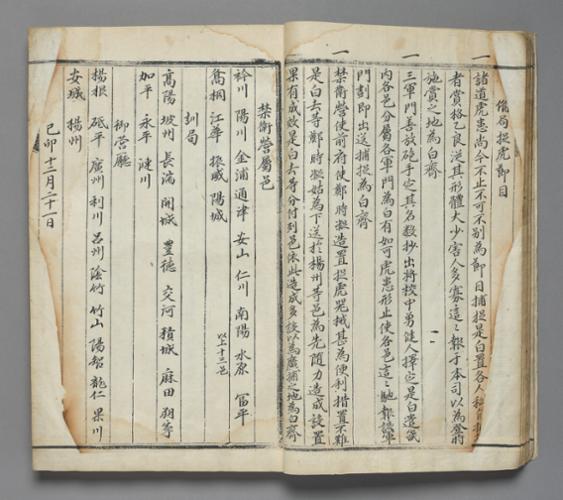 備局捉虎節目
一 諸道虎患尚今不止不可不別為節目捕捉是白置各人
者賞格乙良從其形體大少害人多寡這〻報于本司以為登聞
施賞之地為白齊
一 三軍門善放砲手定其名數抄出將校中勇健人擇定是白遣畿
內各邑分屬各軍門為白有如可虎患形止使各邑這〻馳報該軍
門劃即出送捕捉為白齊
一 禁衛營使前府使鄭時凝造置捉虎器械甚為便利措置不難
是白去等鄭時凝姑為下送於楊州等邑為先隨力造成設置
果有成效是白去等分付列邑依此造成多設以為廣捕之地為白齊
禁衛營屬邑
衿川 陽川 金浦 通津 安山 仁川 南陽 水原 富平
喬桐 江華 振威 陽城 以上十三邑
訓局
高陽 坡州 長湍 開城 豊德 交河 積城 麻田 朔寧
加平 永平 漣川
御營廳
楊根 砥平 廣州 利川 呂州 陰竹 竹山 陽智 龍仁 果川
安城 楊州
己卯十二月二十一日